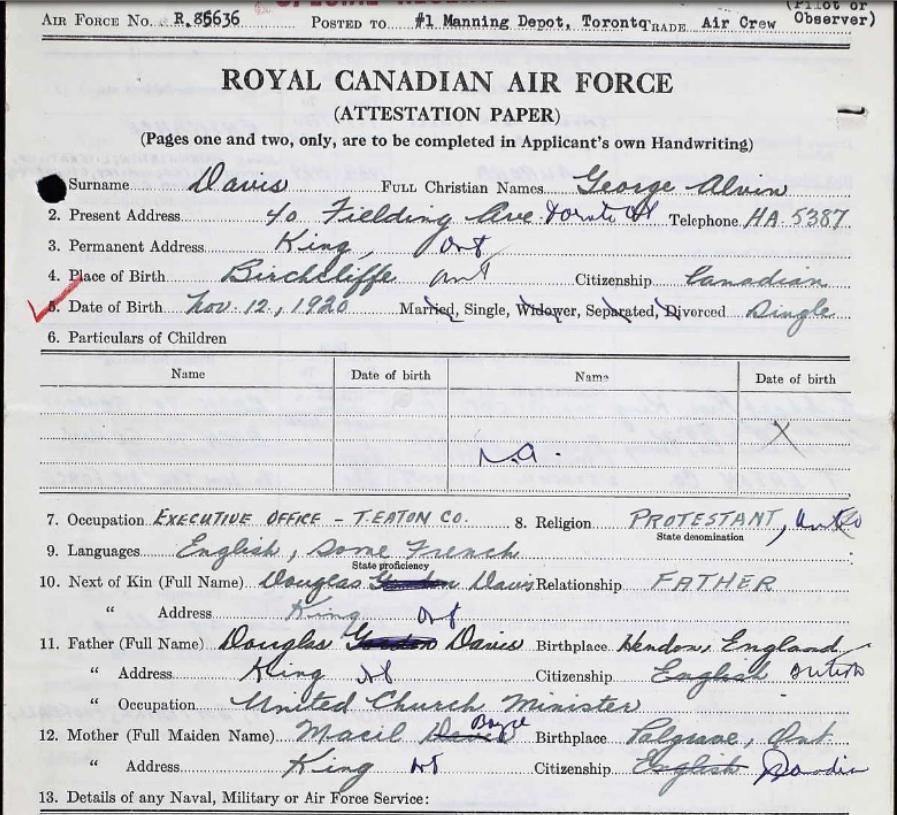 (Pilot or
AIR FORCE No. R.85636 POSTED TO #1 Manning Depot, Toronto TRADE Air Crew Observer)
ROYAL CANADIAN AIR FORCE
(ATTESTATION PAPER)
(Pages one and two, only, are to be completed in Applicant's own Handwriting)
Surname Davis FULL Christian Names George Alvin
2. Present Address 40 Fielding Ave. Toronto Ont Telephone HA 5387
3. Permanent Address King, Ont
4. Place of Birth Birchcliffe Ont Citizenship Canadian
5. Date of Birth Nov. 12., 1920 Married, Single, Widower, Separated, Divorced Single
6. Particulars of Children
Name Date of birth Name Date of birth
X
N.A.
7. Occupation EXECUTIVE OFFICE - T. EATON CO. 8. Religion PROTESTANT,
State denomination
9. Languages English, Some French
State proficiency
10. Next of Kin (Full Name) Douglas Gordon Davis Relationship FATHER
" Address King Ont
11. Father (Full Name) Douglas Gordon Davis Birthplace Hendon, England
" Address King Ont Citizenship English British
" Occupation United Church Minister
12. Mother (Full Maiden Name) Davis Boyce Birthplace Palgrave, Ont.
" Address King Ont Citizenship English Canadian
13. Details of any Naval, Military or Air Force Service: